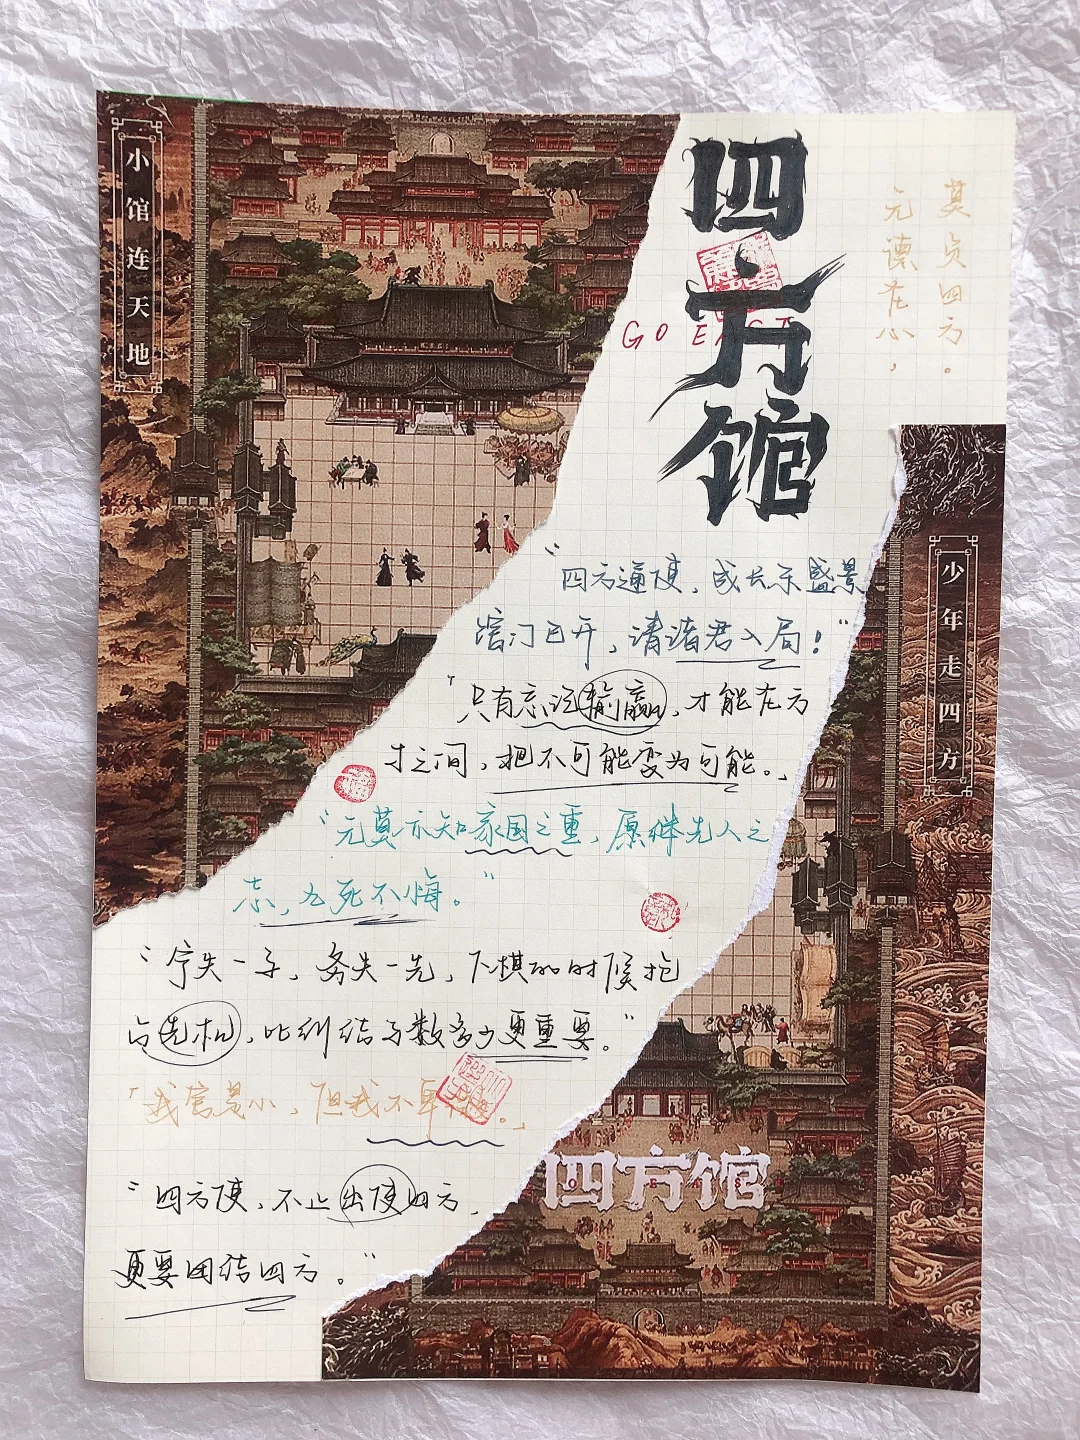 小馆连天地
四方馆
GO EAST
元漠在心，
莫负四方。
少年走四方
“四方通使，成长乐盛景
馆门已开，请诸君入局！”
“只有忘记输赢，才能在方
寸之间，把不可能变为可能。”
“元莫亦知家国之重，愿继先人之
志，九死不悔。”
“宁失一子，务失一先，下棋的时候抢
占先机，比纠结子数多少更重要。”
“我官是小，但我不卑
“四方使，不止出使四方，
更要团结四方。”
四方馆